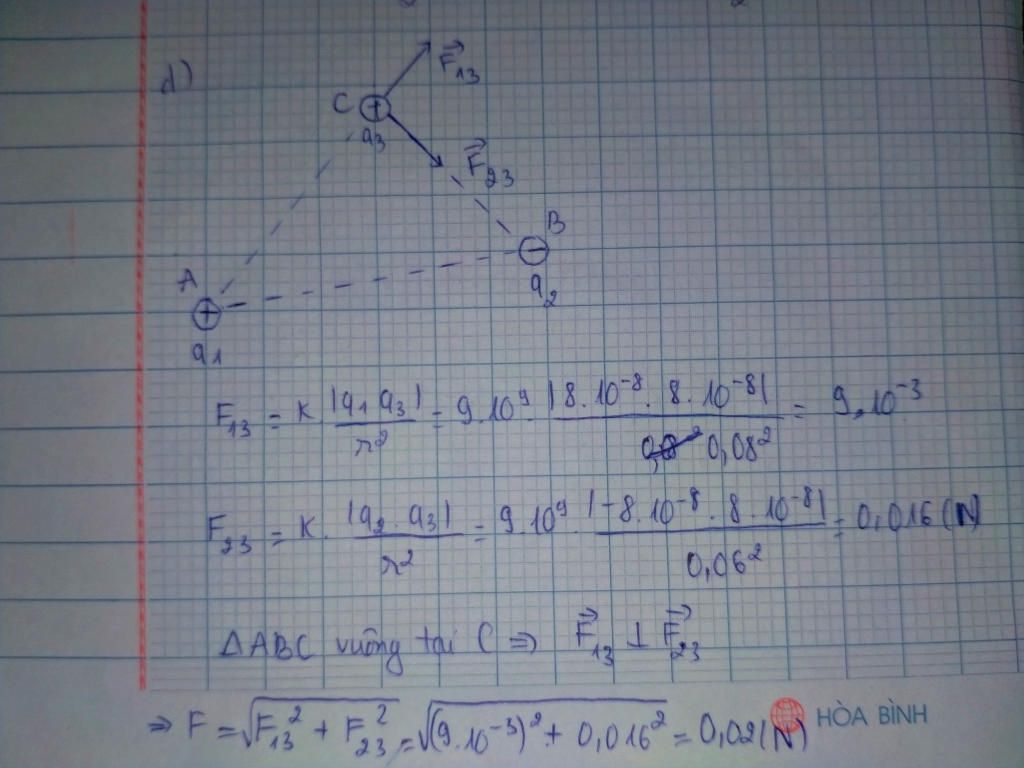 d)
F⃗₁₃
C +
q₃
F⃗₂₃
B
−
q₂
A
+
q₁
F₁₃ = k |q₁ q₃| / r² = 9.10⁹ |8.10⁻⁸. 8.10⁻⁸| / 0,08² = 9.10⁻³
F₂₃ = k. |q₂.q₃| / r² = 9.10⁹. |-8.10⁻⁸. 8.10⁻⁸| / 0,06² = 0,016 (N)
ΔABC vuông tại C ⇒ F⃗₁₃ ⊥ F⃗₂₃
⇒ F = √(F₁₃² + F₂₃²) = √((9.10⁻³)² + 0,016²) = 0,02 (N)
HÒA BÌNH